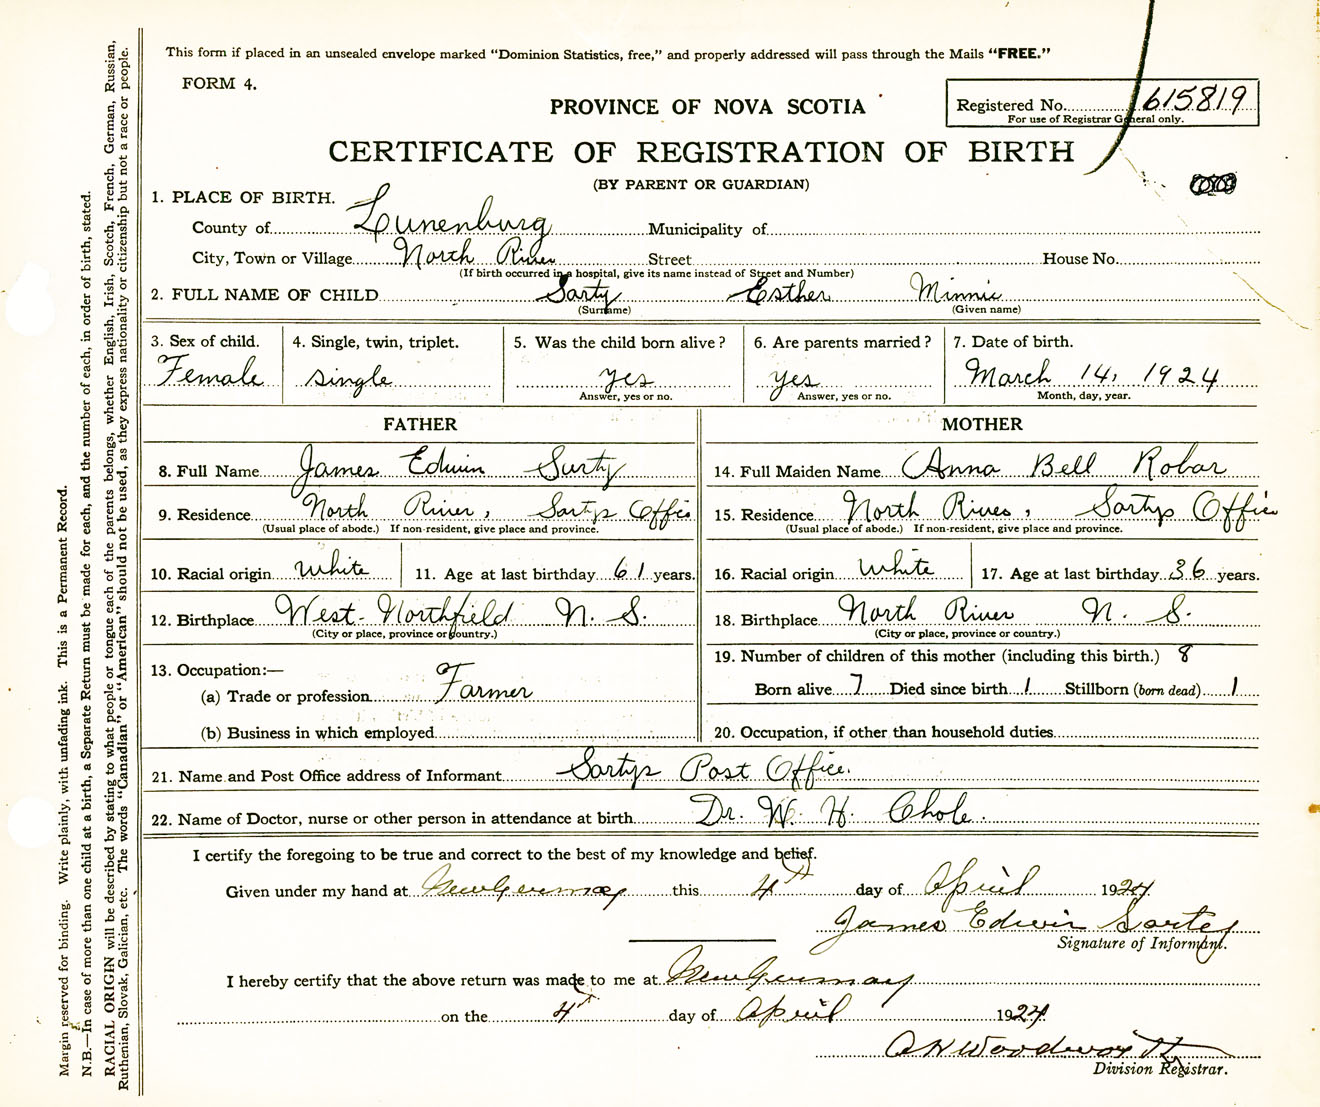 This form if placed in an unsealed envelope marked “Dominion Statistics, free,” and properly addressed will pass through the Mails “FREE.”
FORM 4.
PROVINCE OF NOVA SCOTIA
Registered No. 615819
For use of Registrar General only.
CERTIFICATE OF REGISTRATION OF BIRTH
(BY PARENT OR GUARDIAN)
1. PLACE OF BIRTH.
County of Lunenburg Municipality of
City, Town or Village North River Street House No.
(If birth occurred in a hospital, give its name instead of Street and Number)
2. FULL NAME OF CHILD Sarty Esther Minnie
(Surname) (Given name)
3. Sex of child. 4. Single, twin, triplet. 5. Was the child born alive? 6. Are parents married? 7. Date of birth.
Female single yes yes March 14, 1924
Answer, yes or no. Answer, yes or no. Month, day, year.
FATHER MOTHER
8. Full Name James Edwin Surty 14. Full Maiden Name Anna Bell Robar
9. Residence North River, Sartys Offic 15. Residence North River, Sartys Office
(Usual place of abode.) If non-resident, give place and province. (Usual place of abode.) If non-resident, give place and province.
10. Racial origin white 11. Age at last birthday 61 years. 16. Racial origin white 17. Age at last birthday 36 years.
12. Birthplace West Northfield N. S. 18. Birthplace North River N. S.
(City or place, province or country.) (City or place, province or country.)
13. Occupation:— 19. Number of children of this mother (including this birth.) 8
(a) Trade or profession Farmer Born alive 7 Died since birth 1 Stillborn (born dead) 1
(b) Business in which employed 20. Occupation, if other than household duties
21. Name and Post Office address of Informant Sartys Post Office.
22. Name of Doctor, nurse or other person in attendance at birth Dr. W. H. Chole.
I certify the foregoing to be true and correct to the best of my knowledge and belief.
Given under my hand at New Germany this 4th day of April 1924
James Edwin Sartey
Signature of Informant.
I hereby certify that the above return was made to me at New Germany
on the 4th day of April 1924
Woodworth
Division Registrar.
Margin reserved for binding. Write plainly, with unfading ink. This is a Permanent Record.
N.B.—In case of more than one child at a birth, a Separate Return must be made for each, and the number of each, in order of birth, stated.
RACIAL ORIGIN will be described by stating to what people or tongue each of the parents belongs, whether English, Irish, Scotch, French, German, Russian,
Ruthenian, Slovak, Galician, etc. The words “Canadian” or “American” should not be used, as they express nationality or citizenship but not a race or people.